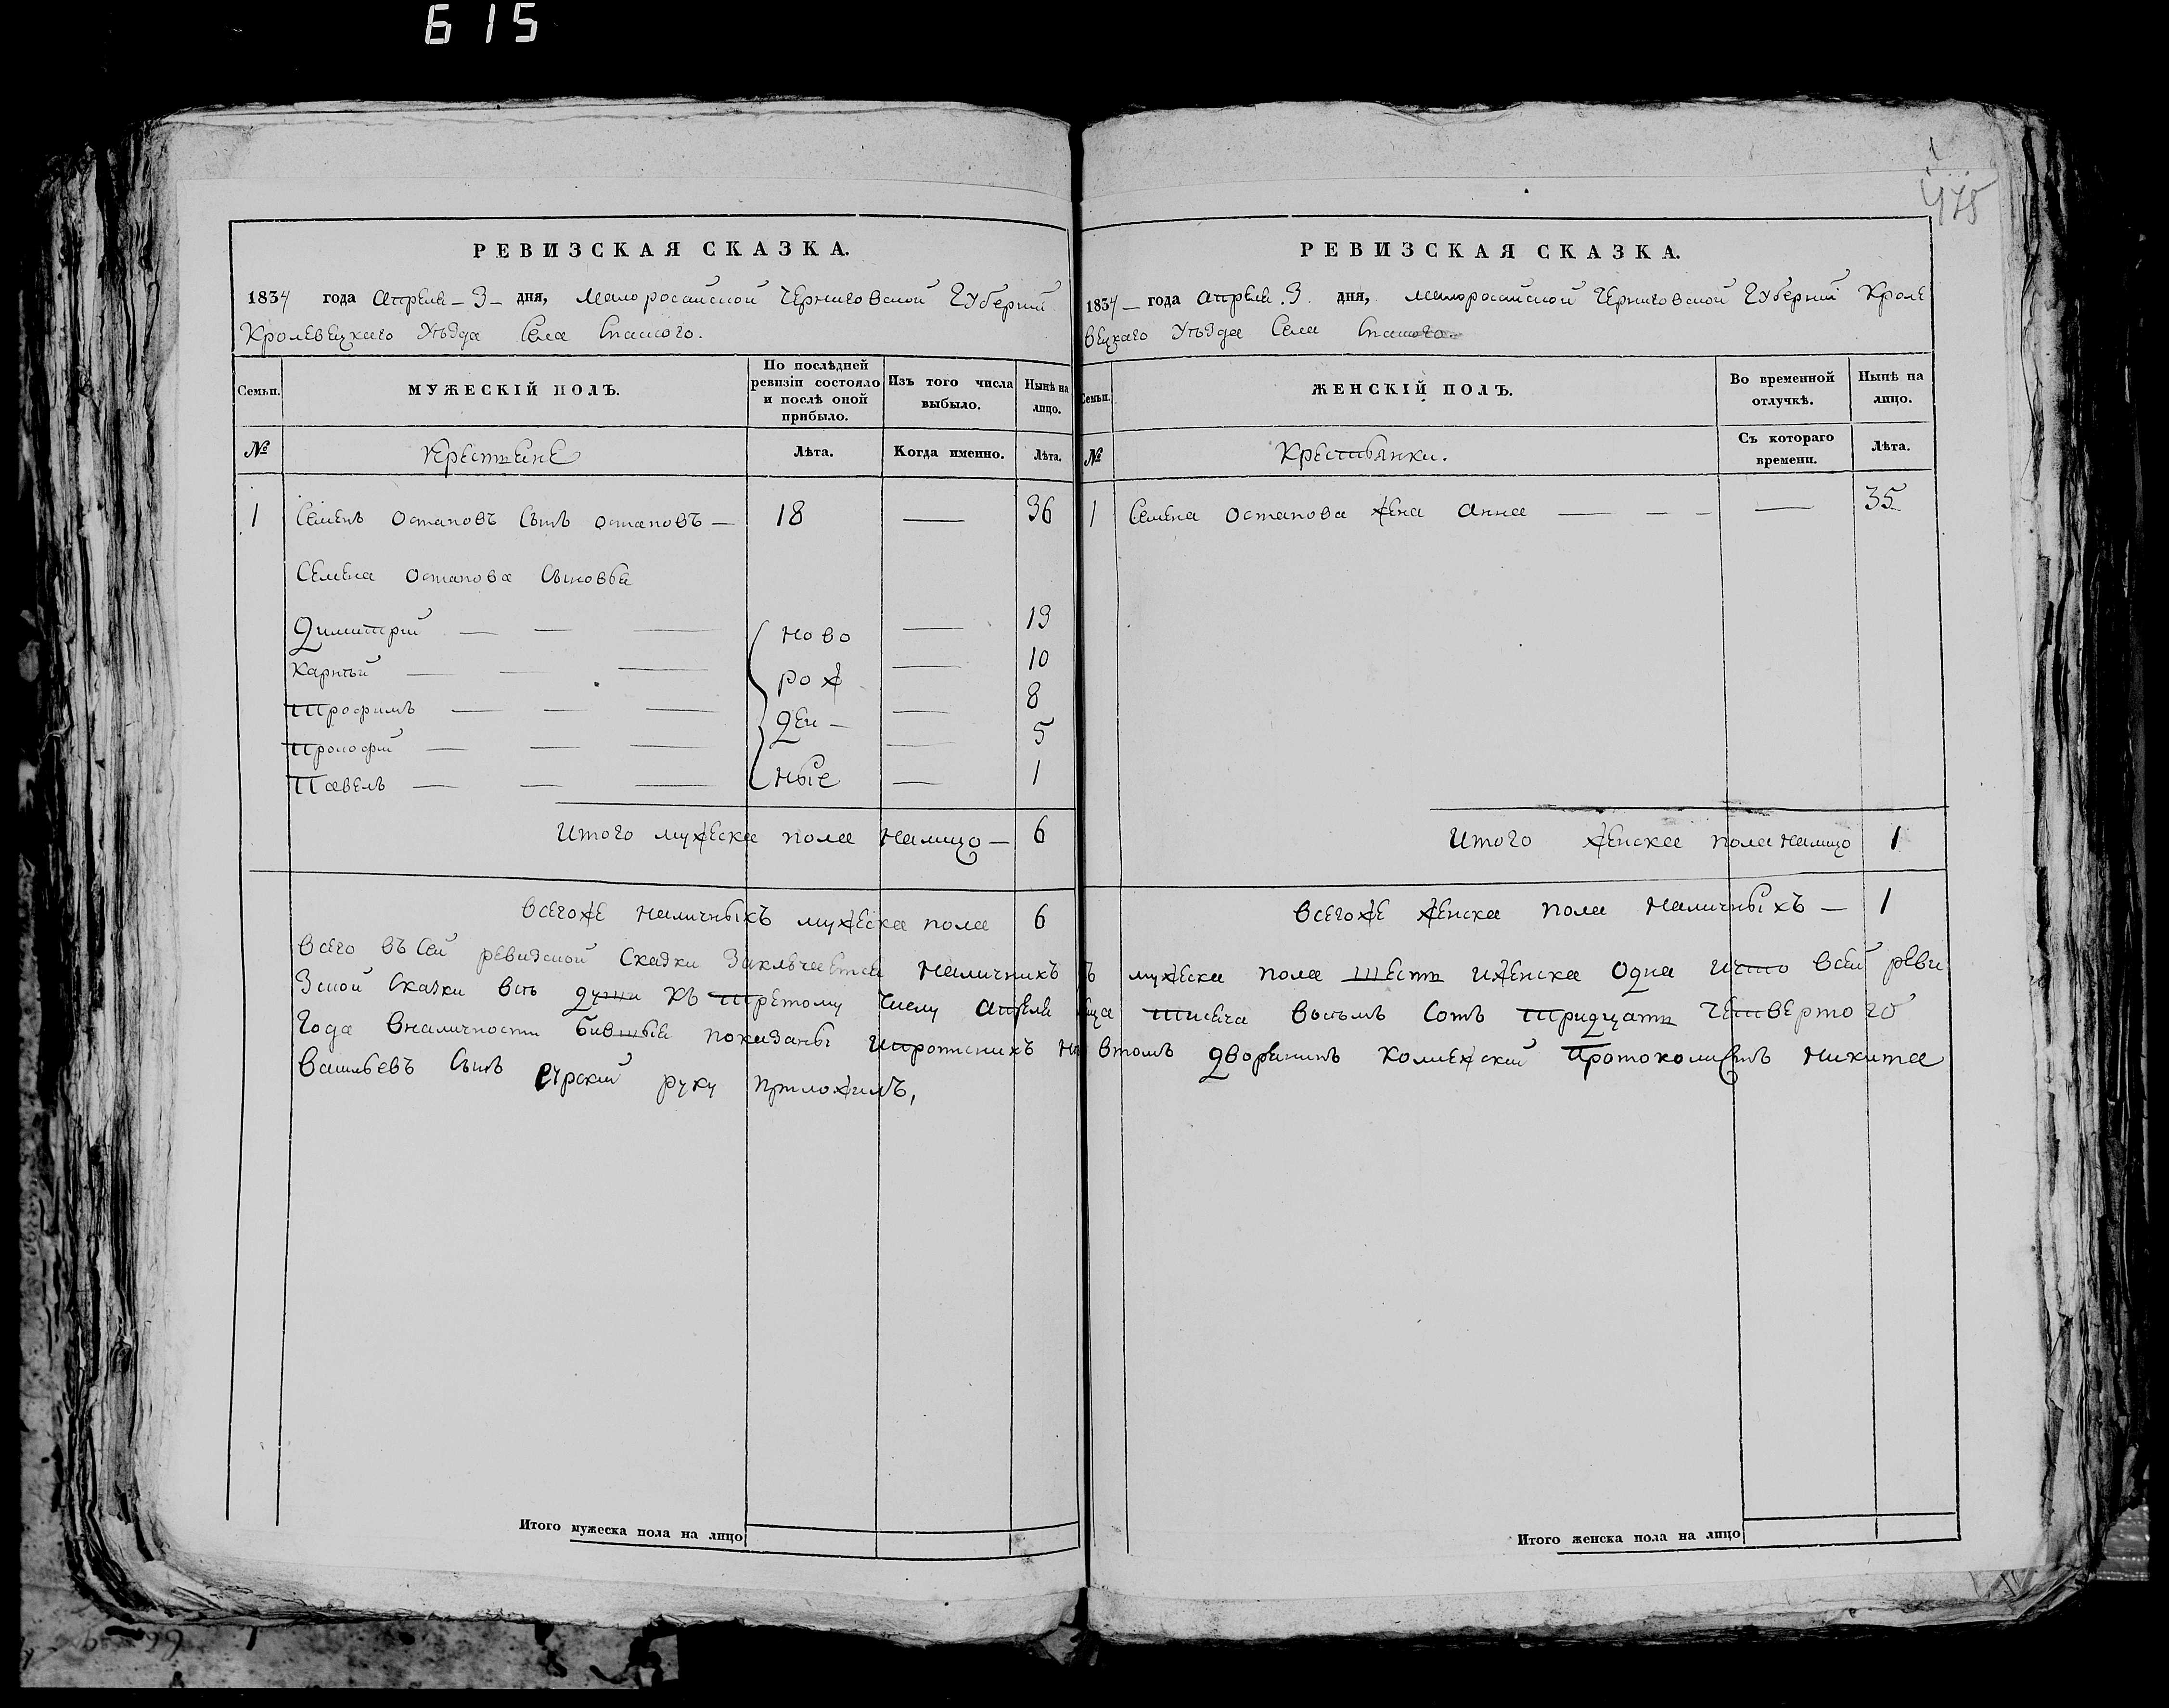 615
475
РЕВИЗСКАЯ СКАЗКА.
1834 года апреля - 3 - дня, Малоросийской Черниговской Губернии
Кролевецкаго Уезда Села Спаского.
Семьи. МУЖЕСКІЙ ПОЛЪ. По послѣдней ревизіи состояло и послѣ оной прибыло. Изъ того числа выбыло. Нынѣ на лицо.
№ Крестяне Лѣта. Когда именно. Лѣта.
1 Семенъ Остаповъ Сынъ Остаповъ — 18 — 36
Семена Остапова Сыновья
Димитрий — — — ново — 13
Карпъй — — — рож — 10
Трофимъ — — — ден — — 8
Прокофий — — — — 5
Павелъ — — — ные — 1
Итого мужеска пола налицо — 6
Всегоже наличныхъ мужеска пола 6
РЕВИЗСКАЯ СКАЗКА.
1834 — года апреля . 3 . дня, Малоросийской Черниговской Губернии Кроле
вецкаго Уезда Села Спаского
Семьи. ЖЕНСКІЙ ПОЛЪ. Во временной отлучкѣ. Нынѣ на лицо.
№ Крестьянки. Съ котораго времени. Лѣта.
1 Семена Остапова жена Анна — — — — 35
Итого женска пола налицо 1
Всегоже женска пола наличныхъ — 1
Всего въ сей ревизской сказки заключается наличнихъ мужеска пола шесть иженска одна ичто всей реви
зской сказки всъ души къ третому числу апреля тисяча восъмъ сотъ тридцать четвертого
года вналичности бившыя показаны ипрописнихъ нъ втомъ дворянинъ колежский протоколистъ Никита
Васильевъ Сынъ руку приложилъ,
Итого мужеска пола на лицо
Итого женска пола на лицо